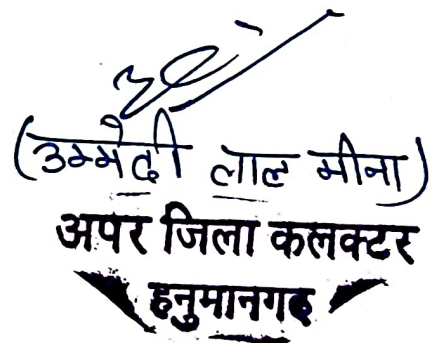 (उम्मेदी लाल मीना)
अपर जिला कलक्टर
हनुमानगढ़